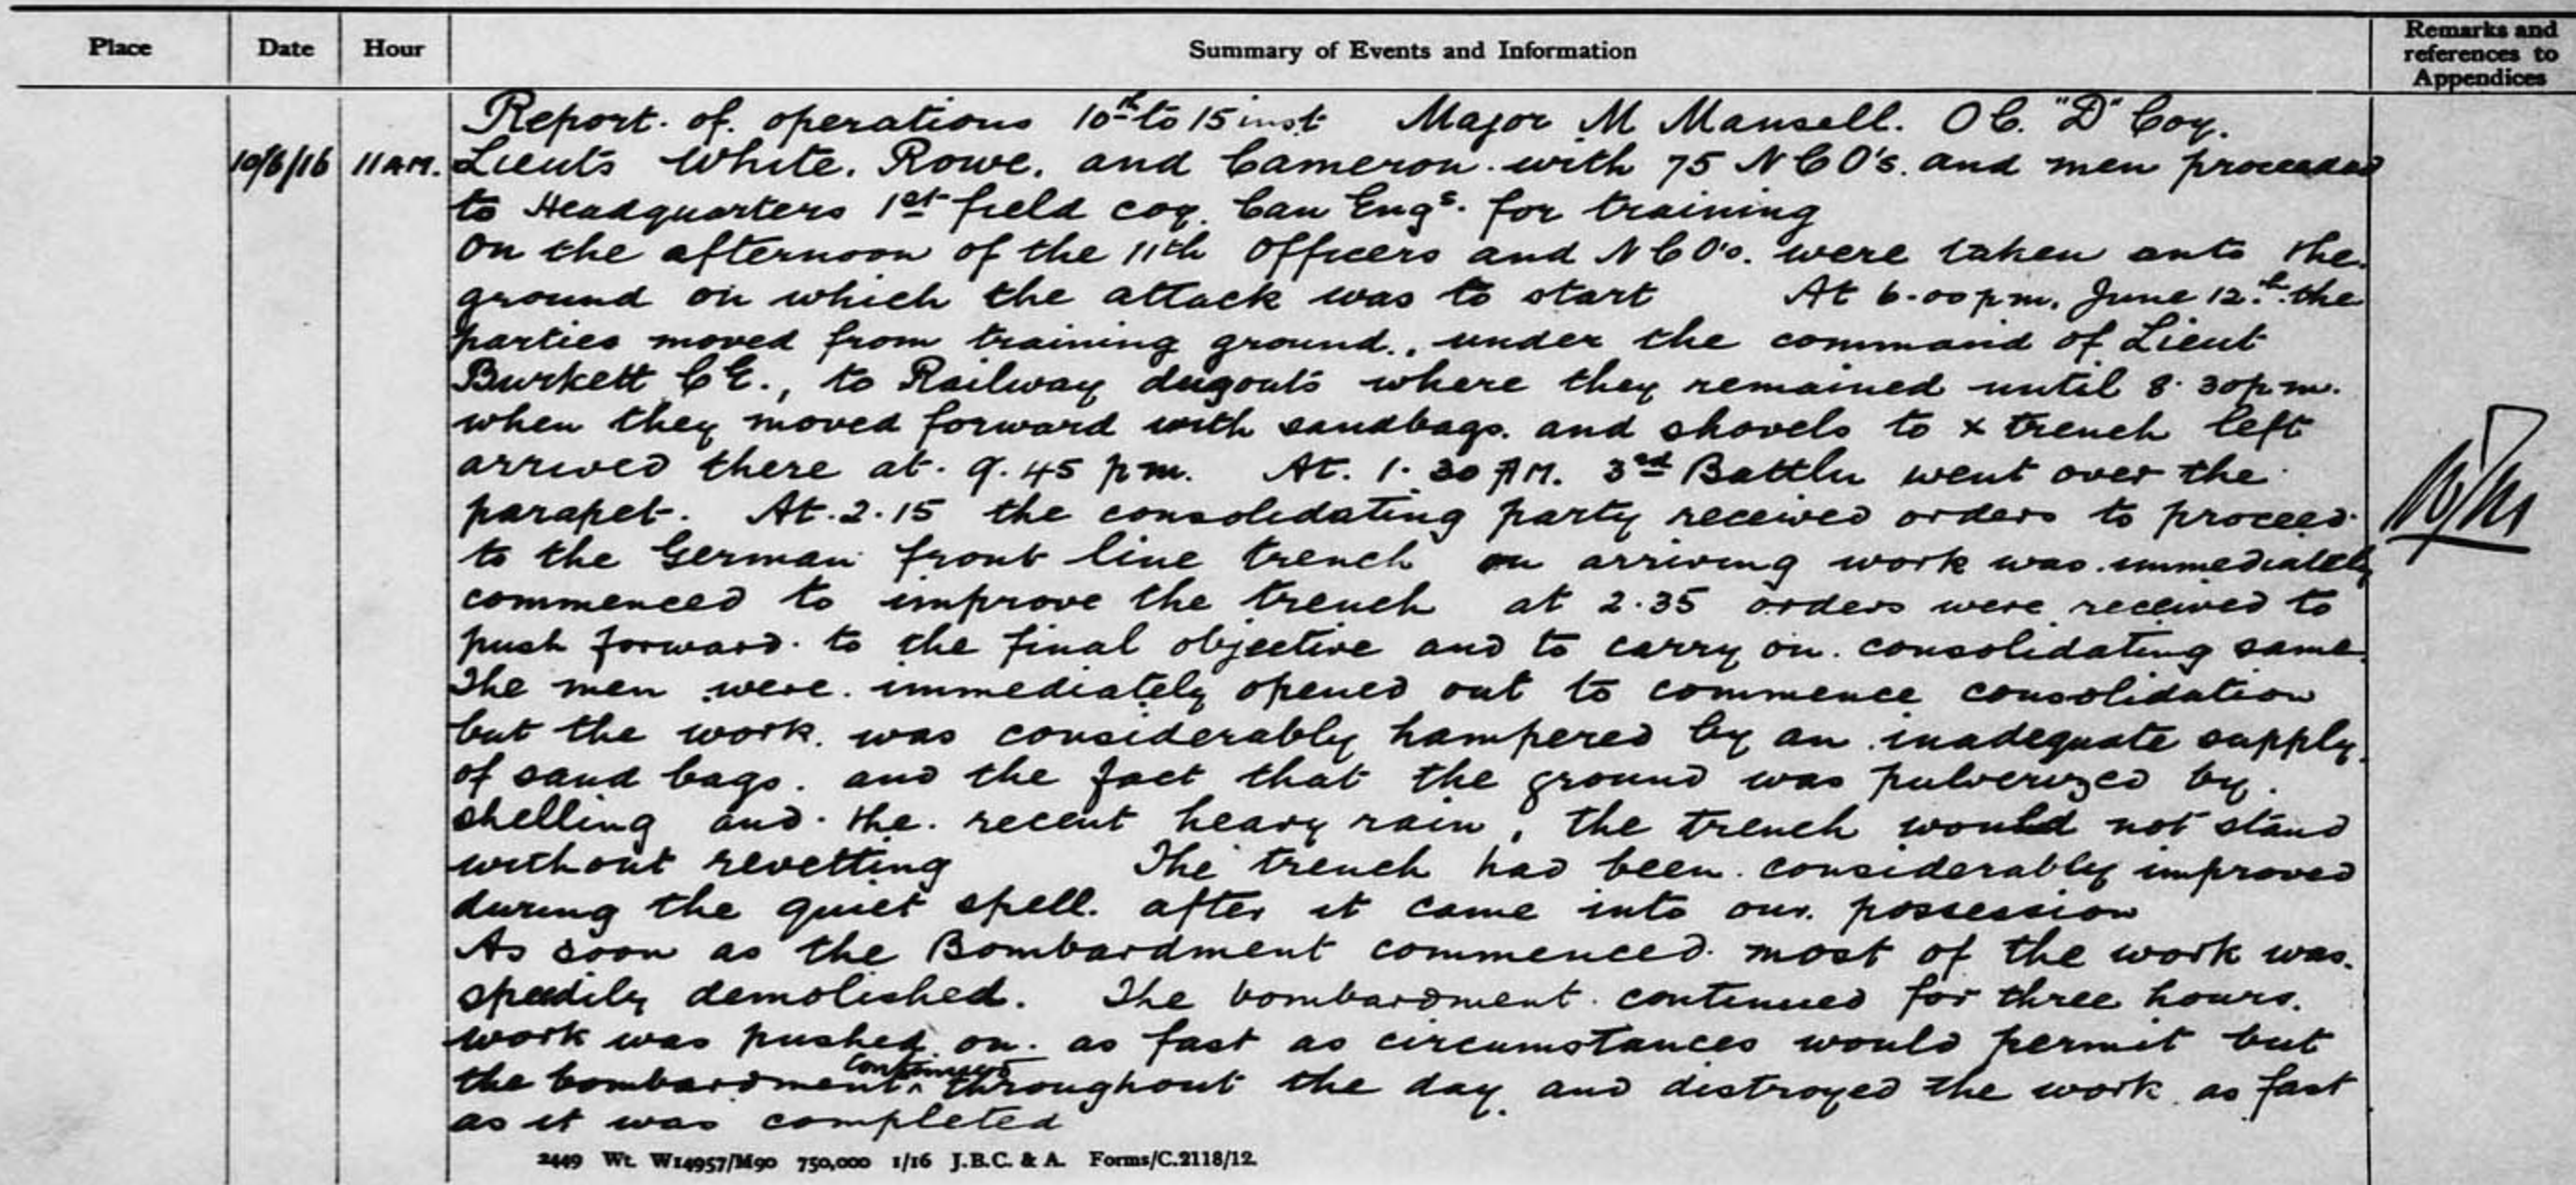 Place Date Hour Summary of Events and Information Remarks and references to Appendices
Report. of. operations 10th to 15 inst Major M Mansell. O C. "D" Coy.
10/6/16 11 A.M. Lieuts White. Rowe. and Cameron. with 75 N C O's. and men proceeded
to Headquarters 1st field coy. Can Engs. for training
On the afternoon of the 11th Officers and N C O's. were taken onto the
ground on which the attack was to start At 6.00 p m, June 12th. the
parties moved from training ground., under the command of Lieut
Burkett C E., to Railway dugouts where they remained until 8.30 p m.
when they moved forward with sandbags. and shovels to x trench left
arrived there at. 9.45 p m. At. 1.30 A M. 3rd Battln went over the
parapet. At. 2.15 the consolidating party received orders to proceed
to the German front line trench on arriving work was. immediately
commenced to improve the trench at 2.35 orders were received to
push forward. to the final objective and to carry on. consolidating same.
The men were. immediately opened out to commence consolidation
but the work. was considerably hampered by an inadequate supply.
of sand bags. and the fact that the ground was pulverized by.
shelling and. the. recent heavy rain, the trench would not stand
without revetting The trench had been. considerably improved
during the quiet spell. after it came into our. possession
As soon as the Bombardment commenced. most of the work was.
speedily demolished. The bombardment. continued for three hours.
work was pushed on. as fast as circumstances would permit but
the bombardment ^continued throughout the day. and distroyed the work. as fast
as it was completed
2449 Wt. W14957/M90 750,000 1/16 J.B.C. & A. Forms/C.2118/12.